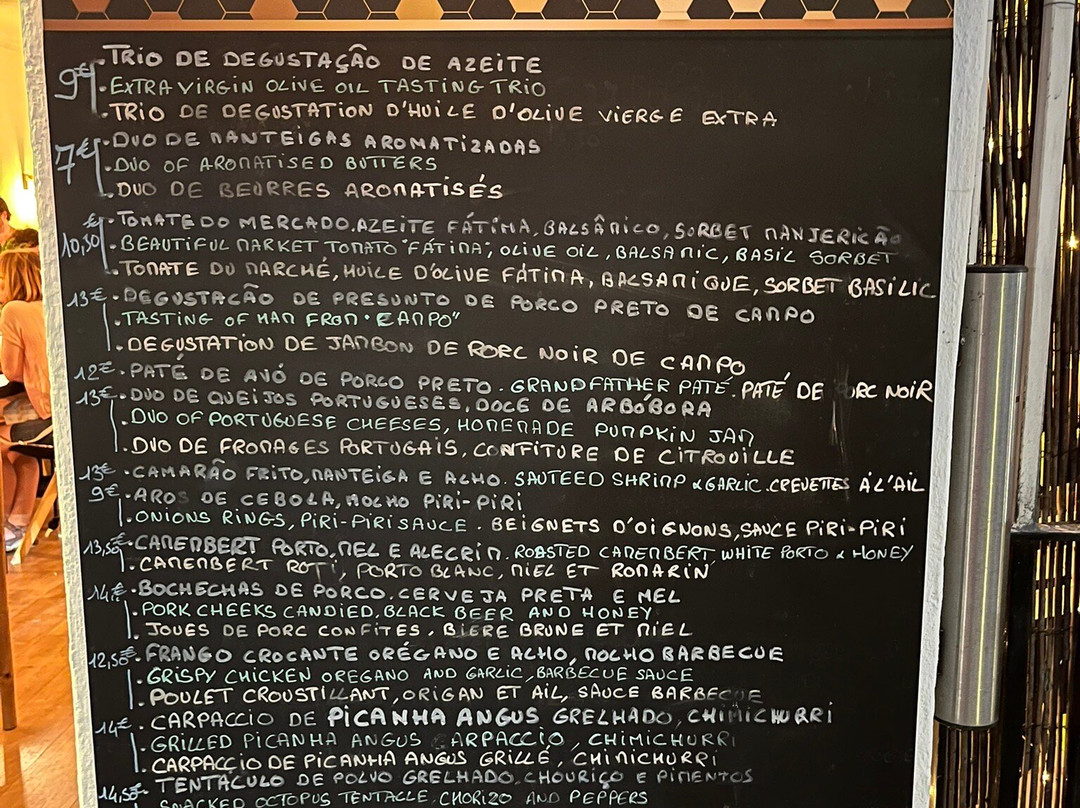 9€ . TRIO DE DEGUSTAÇÃO DE AZEITE
. EXTRA VIRGIN OLIVE OIL TASTING TRIO
. TRIO DE DEGUSTATION D'HUILE D'OLIVE VIERGE EXTRA
7€ . DUO DE MANTEIGAS AROMATIZADAS
. DUO OF AROMATISED BUTTERS
. DUO DE BEURRES AROMATISÉS
10,30€ . TOMATE DO MERCADO, AZEITE FÁTIMA, BALSÂMICO, SORBET MANJERICÃO
. BEAUTIFUL MARKET TOMATO "FÁTIMA", OLIVE OIL, BALSAMIC, BASIL SORBET
. TOMATE DU MARCHÉ, HUILE D'OLIVE FÁTIMA, BALSAMIQUE, SORBET BASILIC
13€ . DEGUSTACÃO DE PRESUNTO DE PORCO PRETO DE CAMPO
. TASTING OF HAM FROM "CAMPO"
. DEGUSTATION DE JAMBON DE PORC NOIR DE CAMPO
12€ . PATÉ DE AVÓ DE PORCO PRETO . GRANDFATHER PATÉ . PATÉ DE PORC NOIR
13€ . DUO DE QUEIJOS PORTUGUESES, DOCE DE ARBÓBORA
. DUO OF PORTUGUESE CHEESES, HOMEMADE PUMPKIN JAM
. DUO DE FROMAGES PORTUGAIS, CONFITURE DE CITROUILLE
13€ . CAMARÃO FRITO, MANTEIGA E ALHO . SAUTEED SHRIMP & GARLIC . CREVETTES À L'AIL
9€ . AROS DE CEBOLA, MOLHO PIRI-PIRI
. ONIONS RINGS, PIRI-PIRI SAUCE . BEIGNETS D'OIGNONS, SAUCE PIRI-PIRI
13,50€ . CAMEMBERT PORTO, MEL E ALECRIM . ROASTED CAMEMBERT WHITE PORTO & HONEY
. CAMEMBERT ROTI, PORTO BLANC, MIEL ET ROMARIN
14€ . BOCHECHAS DE PORCO, CERVEJA PRETA E MEL
. PORK CHEEKS CANDIED, BLACK BEER AND HONEY
. JOUES DE PORC CONFITES, BIERE BRUNE ET MIEL
12,50€ . FRANGO CROCANTE ORÉGANO E ALHO, MOLHO BARBECUE
. CRISPY CHICKEN OREGANO AND GARLIC, BARBECUE SAUCE
. POULET CROUSTILLANT, ORIGAN ET AIL, SAUCE BARBECUE
14€ . CARPACCIO DE PICANHA ANGUS GRELHADO, CHIMICHURRI
. GRILLED PICANHA ANGUS CARPACCIO, CHIMICHURRI
. CARPACCIO DE PICANHA ANGUS GRILLÉ, CHIMICHURRI
14,50€ . TENTÁCULO DE POLVO GRELHADO, CHOURIÇO E PIMENTOS
SMACKED OCTOPUS TENTACLE, CHORIZO AND PEPPERS